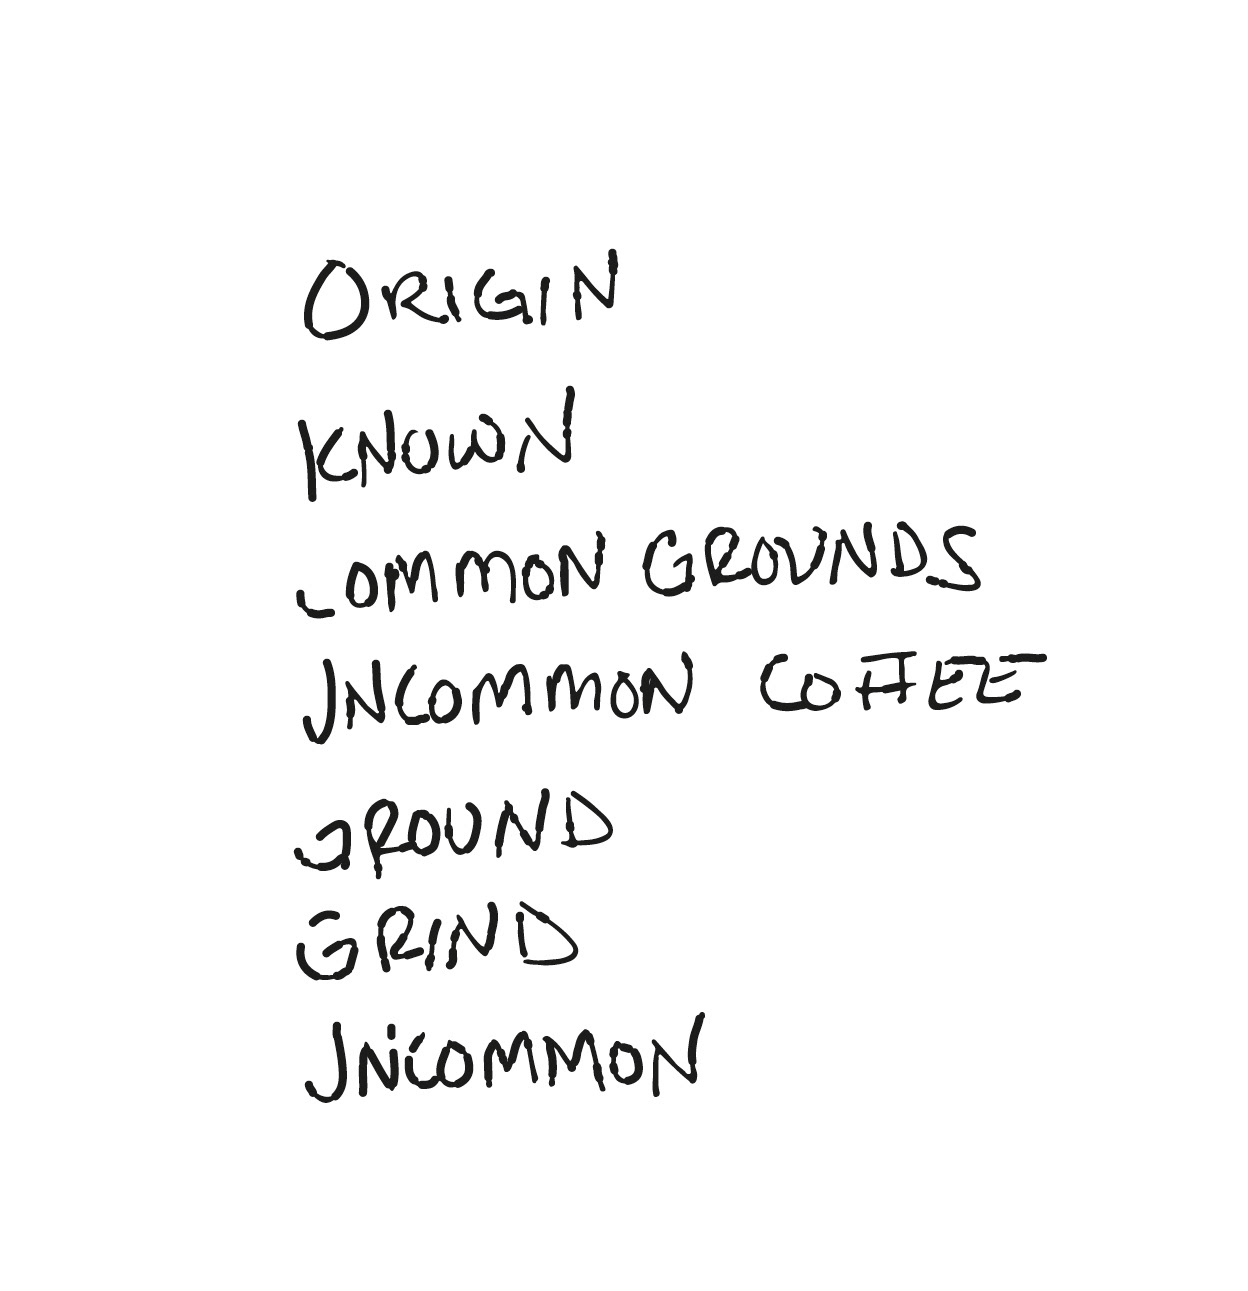 ORIGIN
KNOWN
COMMON GROUNDS
UNCOMMON COFFEE
GROUND
GRIND
UNCOMMON